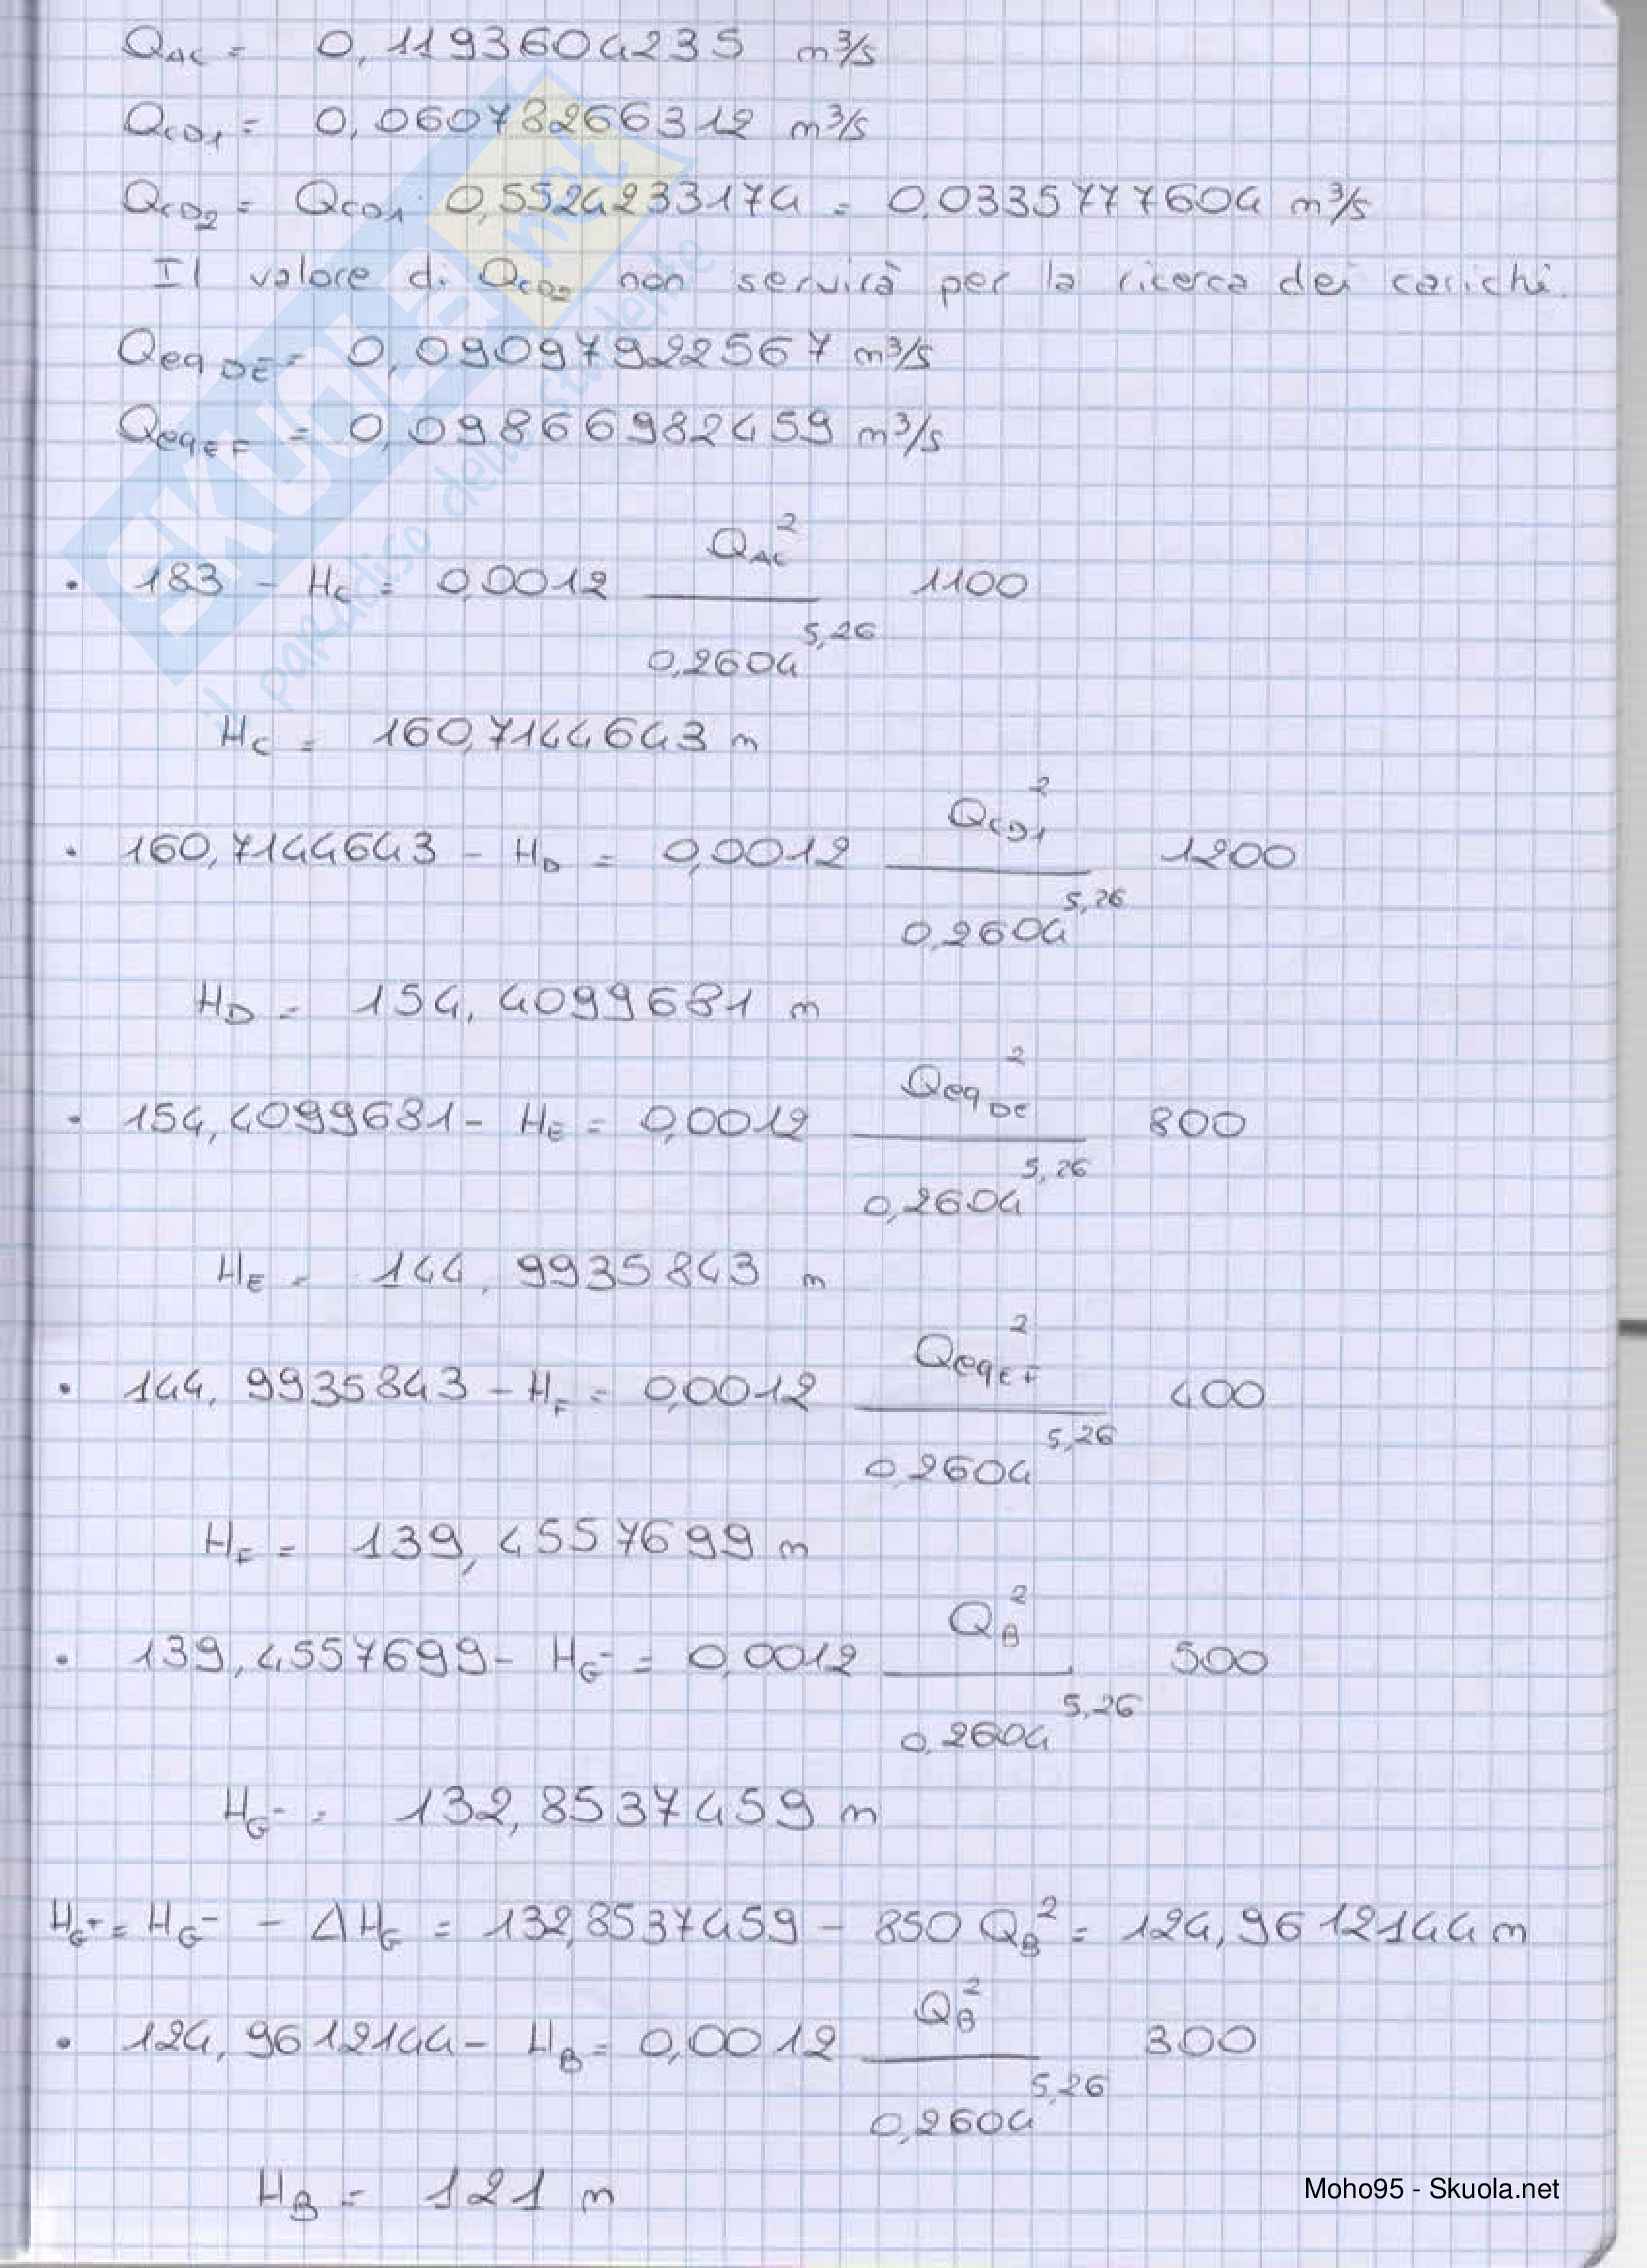 Q_AC = 0,1193604235 m³/s
Q_CD1 = 0,06078266312 m³/s
Q_CD2 = Q_CD1 · 0,5524233174 = 0,0335777604 m³/s
Il valore di Q_CD2 non servirà per la ricerca dei carichi.
Qeq_DE = 0,09097922567 m³/s
Qeq_EF = 0,09866982459 m³/s
• 183 - H_C = 0,0012 Q_AC² / 0,2604^5,26 1100
H_C = 160,7144643 m
• 160,7144643 - H_D = 0,0012 Q_CD1² / 0,2604^5,26 1200
H_D = 154,4099681 m
• 154,4099681 - H_E = 0,0012 Qeq_DE² / 0,2604^5,26 800
H_E = 144,9935843 m
• 144,9935843 - H_F = 0,0012 Qeq_EF² / 0,2604^5,26 400
H_F = 139,4557699 m
• 139,4557699 - H_G⁻ = 0,0012 Q_B² / 0,2604^5,26 500
H_G⁻ = 132,8537459 m
H_G⁺ = H_G⁻ - ΔH_G = 132,8537459 - 850 Q_B² = 124,9612144 m
• 124,9612144 - H_B = 0,0012 Q_B² / 0,2604^5,26 300
H_B = 121 m
SKUOLA.net
il paradiso dello studente
Moho95 - Skuola.net